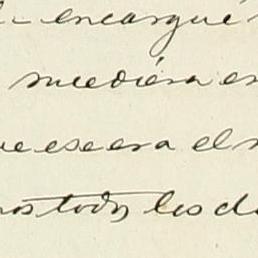 encargué
sucediera en
ue ese era el
os todos los d